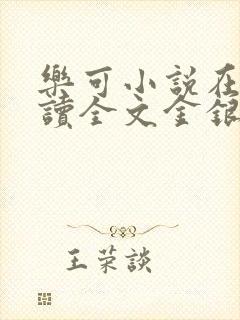 樂可小說在
讀全文金銀
王荣談